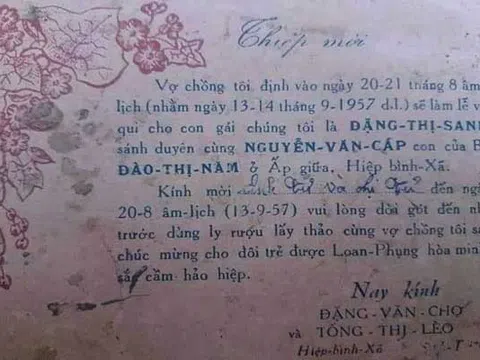 Thiệp mời
Vợ chồng tôi định vào ngày 20-21 tháng 8 âm
lịch (nhằm ngày 13-14 tháng 9-1957 d.l.) sẽ làm lễ v
qui cho con gái chúng tôi là ĐẶNG-THỊ-SANH
sánh duyên cùng NGUYỄN-VĂN-CẬP con của B
ĐÀO-THỊ-NĂM ở Ấp giữa, Hiệp bình-Xã.
Kính mời và đến ng
20-8 âm-lịch (13-9-57) vui lòng dời gót đến nh
trước dùng ly rượu lấy thảo cùng vợ chồng tôi sa
chúc mừng cho đôi trẻ được Loan-Phụng hòa min
sắc cầm hảo hiệp.
Nay kính
ĐẶNG-VĂN-CHỢ
và TỐNG-THỊ-LÈO
Hiệp-bình-Xã